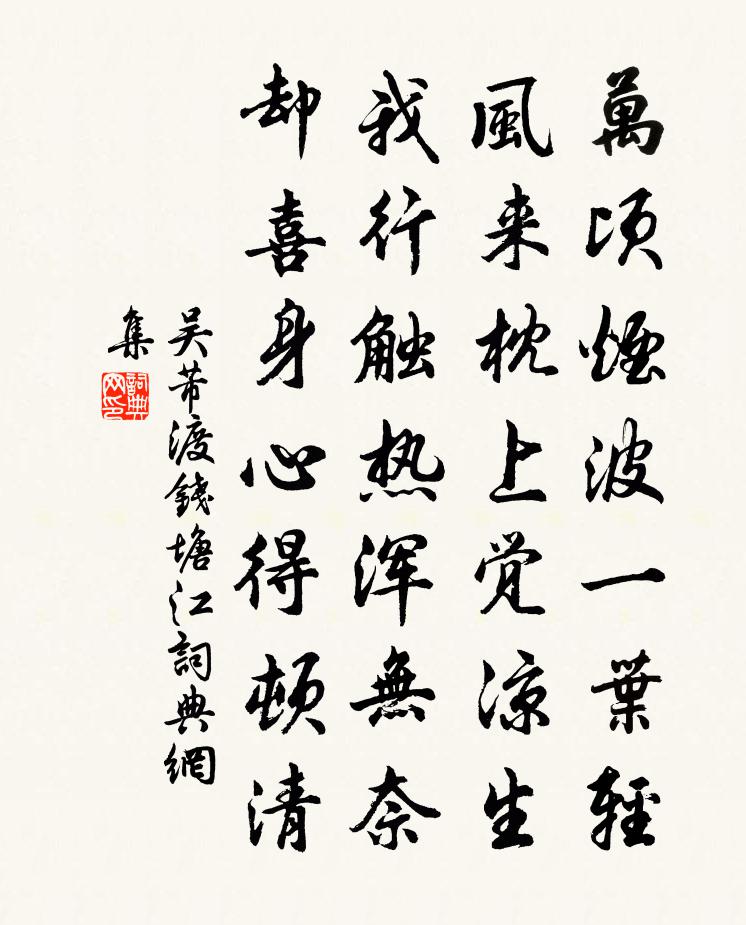 萬頃煙波一葉輕
風来枕上觉凉生
我行触热浑無奈
却喜身心得顿清
吴芾渡錢塘江詞典網
集
詞典
网印